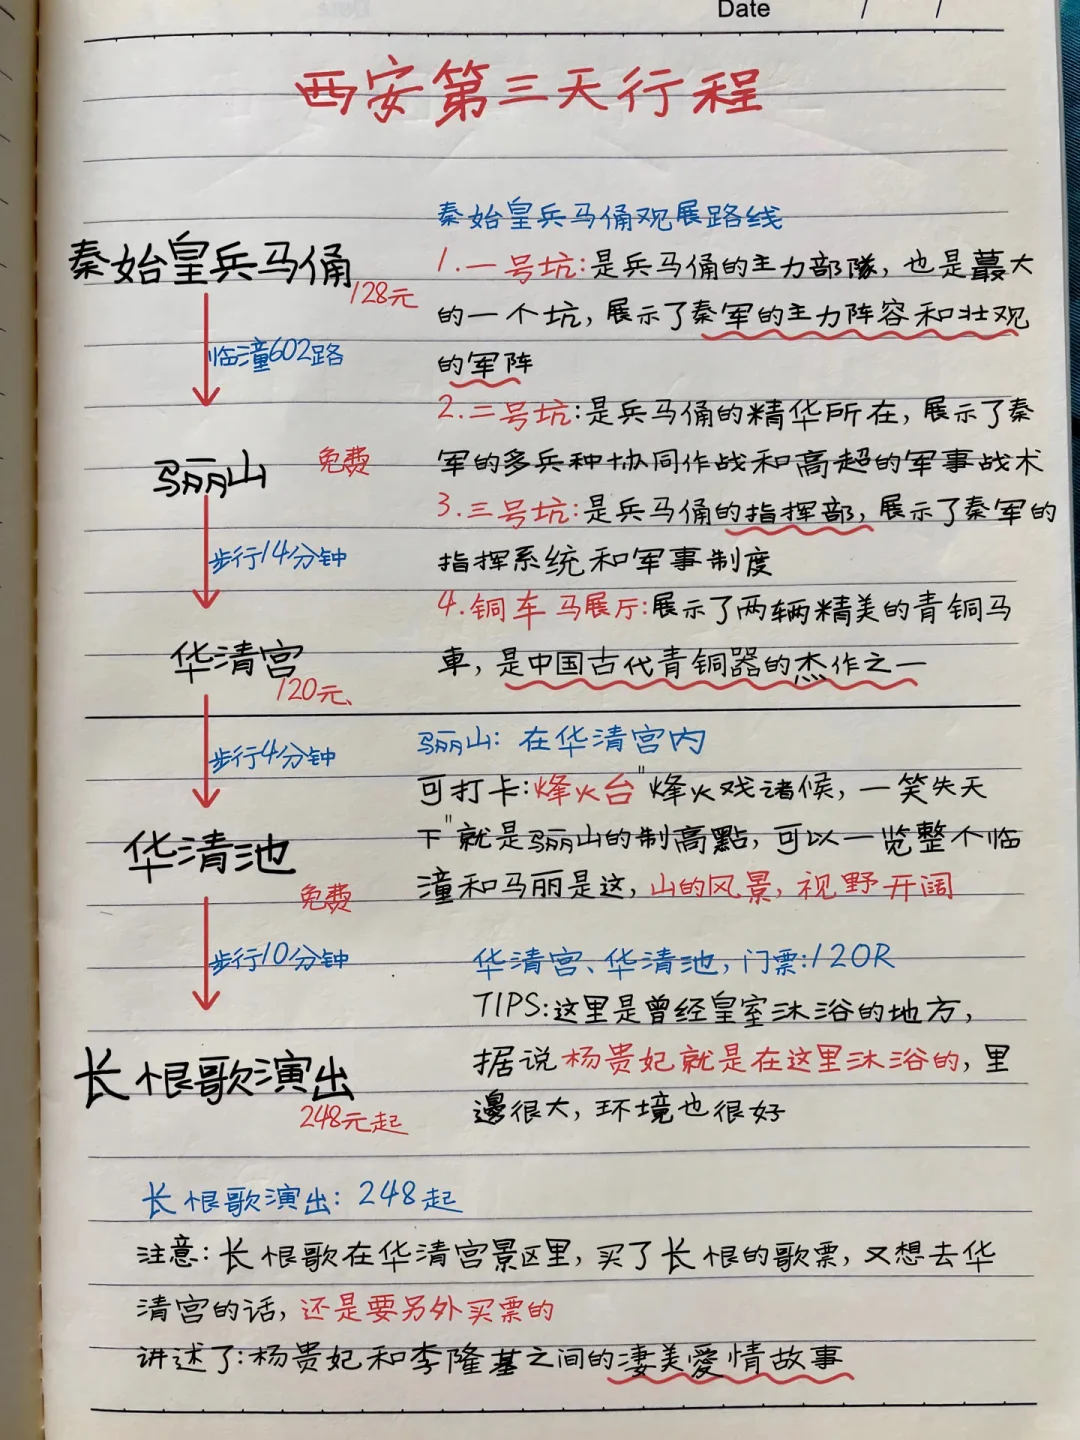 Date / /
西安第三天行程
秦始皇兵马俑
128元
临潼602路
骊山
免费
步行14分钟
华清宫
120元
步行4分钟
华清池
免费
步行10分钟
长恨歌演出
248元起
秦始皇兵马俑观展路线
1.一号坑:是兵马俑的主力部隊,也是蕞大
的一个坑,展示了秦军的主力阵容和壮观
的军阵
2.二号坑:是兵马俑的精华所在,展示了秦
军的多兵种协同作战和高超的军事战术
3.三号坑:是兵马俑的指挥部,展示了秦军的
指挥系统和军事制度
4.铜车马展厅:展示了两辆精美的青铜马
車,是中国古代青铜器的杰作之一
骊山:在华清宫内
可打卡:烽火台"烽火戏诸候,一笑失天
下"就是骊山的制高點,可以一览整个临
潼和马丽是这,山的风景,视野开阔
华清宫、华清池,门票:120R
TIPS:这里是曾经皇室沐浴的地方,
据说杨贵妃就是在这里沐浴的,里
邊很大,环境也很好
长恨歌演出:248起
注意:长恨歌在华清宫景区里,买了长恨的歌票,又想去华
清宫的话,还是要另外买票的
讲述了:杨贵妃和李隆基之间的凄美愛情故事